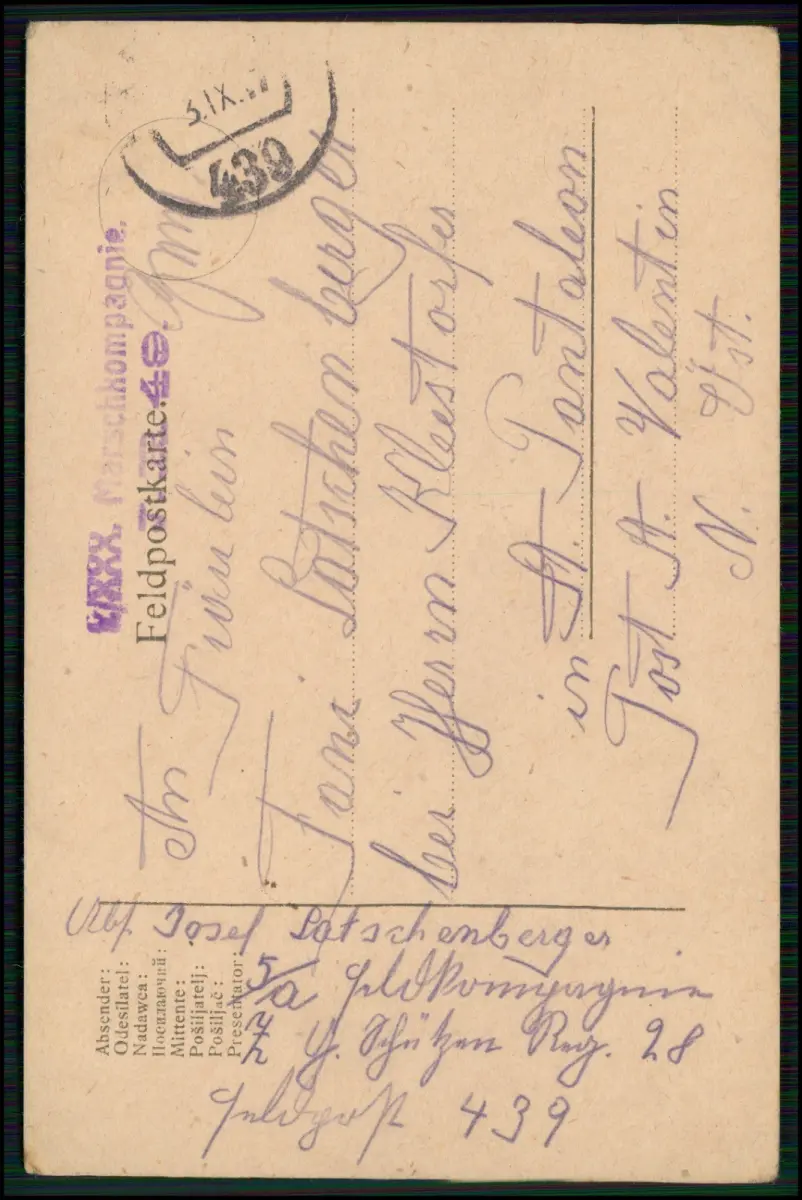 3.IX.
439
XXX. Marschkompagnie.
Feldpostkarte.
Fräulein
Fani Latschenberger
bei Herrn Kleestorfer
in St. Pantaleon
Post St. Valentin
N. Öst.
Absender:
Odesilatel:
Nadawca:
Посилаючий:
Mittente:
Pošiljatelj:
Pošiljač:
Presentator:
Abs. Josef Latschenberger
5/a Feldkompagnie
Schützen Reg. 28
Feldpost 439